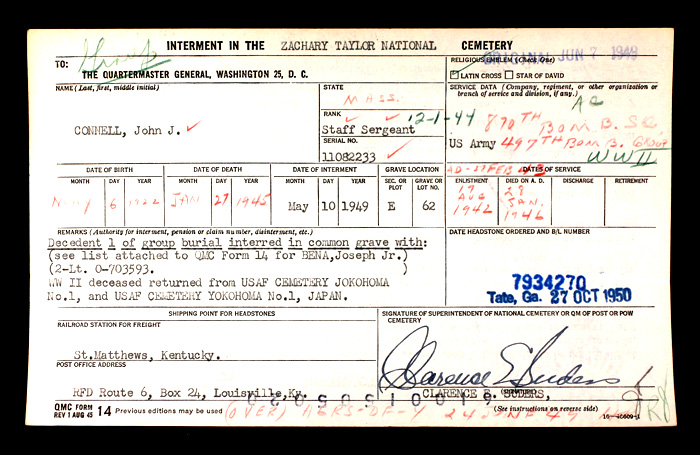 ORIGINAL JUN 7 1949
INTERMENT IN THE ZACHARY TAYLOR NATIONAL CEMETERY
TO:
THE QUARTERMASTER GENERAL, WASHINGTON 25, D. C.
RELIGIOUS EMBLEM (Check One)
☑ LATIN CROSS ☐ STAR OF DAVID
NAME (Last, first, middle initial)
CONNELL, John J. ✓
STATE
MASS.
RANK
Staff Sergeant
SERIAL NO.
11082233 ✓
SERVICE DATA (Company, regiment, or other organization or branch of service and division, if any.)
AC
12-1-44 870TH BOMB. SQ.
US Army 497TH BOMB. GROUP
WWII
DATE OF BIRTH
MONTH DAY YEAR
6 1922
DATE OF DEATH
MONTH DAY YEAR
JAN 27 1945
DATE OF INTERMENT
MONTH DAY YEAR
May 10 1949
GRAVE LOCATION
SEC. OR PLOT GRAVE OR LOT NO.
E 62
DATES OF SERVICE
ENLISTMENT DIED ON A. D. DISCHARGE RETIREMENT
17 AUG 1942
28 JAN. 1946
REMARKS (Authority for interment, pension or claim number, disinterment, etc.)
Decedent 1 of group burial interred in common grave with:
(see list attached to QMC Form 14 for BENA,Joseph Jr.)
(2-Lt. O-703593. )
WW II deceased returned from USAF CEMETERY JOKOHOMA
No.1, and USAF CEMETERY YOKOHOMA No.1, JAPAN.
DATE HEADSTONE ORDERED AND B/L NUMBER
7934270
Tate, Ga. 27 OCT 1950
SHIPPING POINT FOR HEADSTONES
RAILROAD STATION FOR FREIGHT
St.Matthews, Kentucky.
POST OFFICE ADDRESS
RFD Route 6, Box 24, Louisville,Ky.
SIGNATURE OF SUPERINTENDENT OF NATIONAL CEMETERY OR QM OF POST OR POW CEMETERY
Clarence E Suders
CLARENCE E. SUDERS,
QMC FORM
REV 1 AUG 45 14 Previous editions may be used
(OVER)
(See instructions on reverse side)